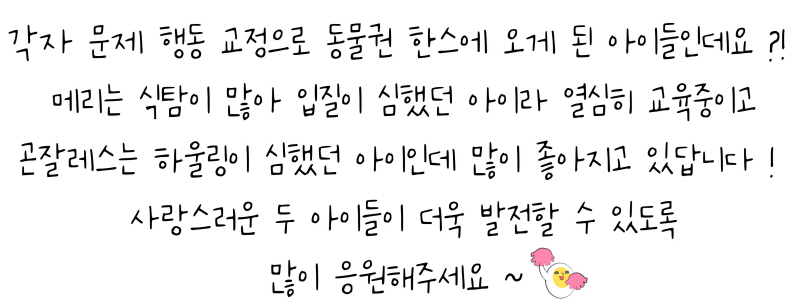 각자 문제 행동 교정으로 동물권 한스에 오게 된 아이들인데요 ?!
메리는 식탐이 많아 입질이 심했던 아이라 열심히 교육중이고
곤잘레스는 하울링이 심했던 아이인데 많이 좋아지고 있답니다 !
사랑스러운 두 아이들이 더욱 발전할 수 있도록
많이 응원해주세요 ~